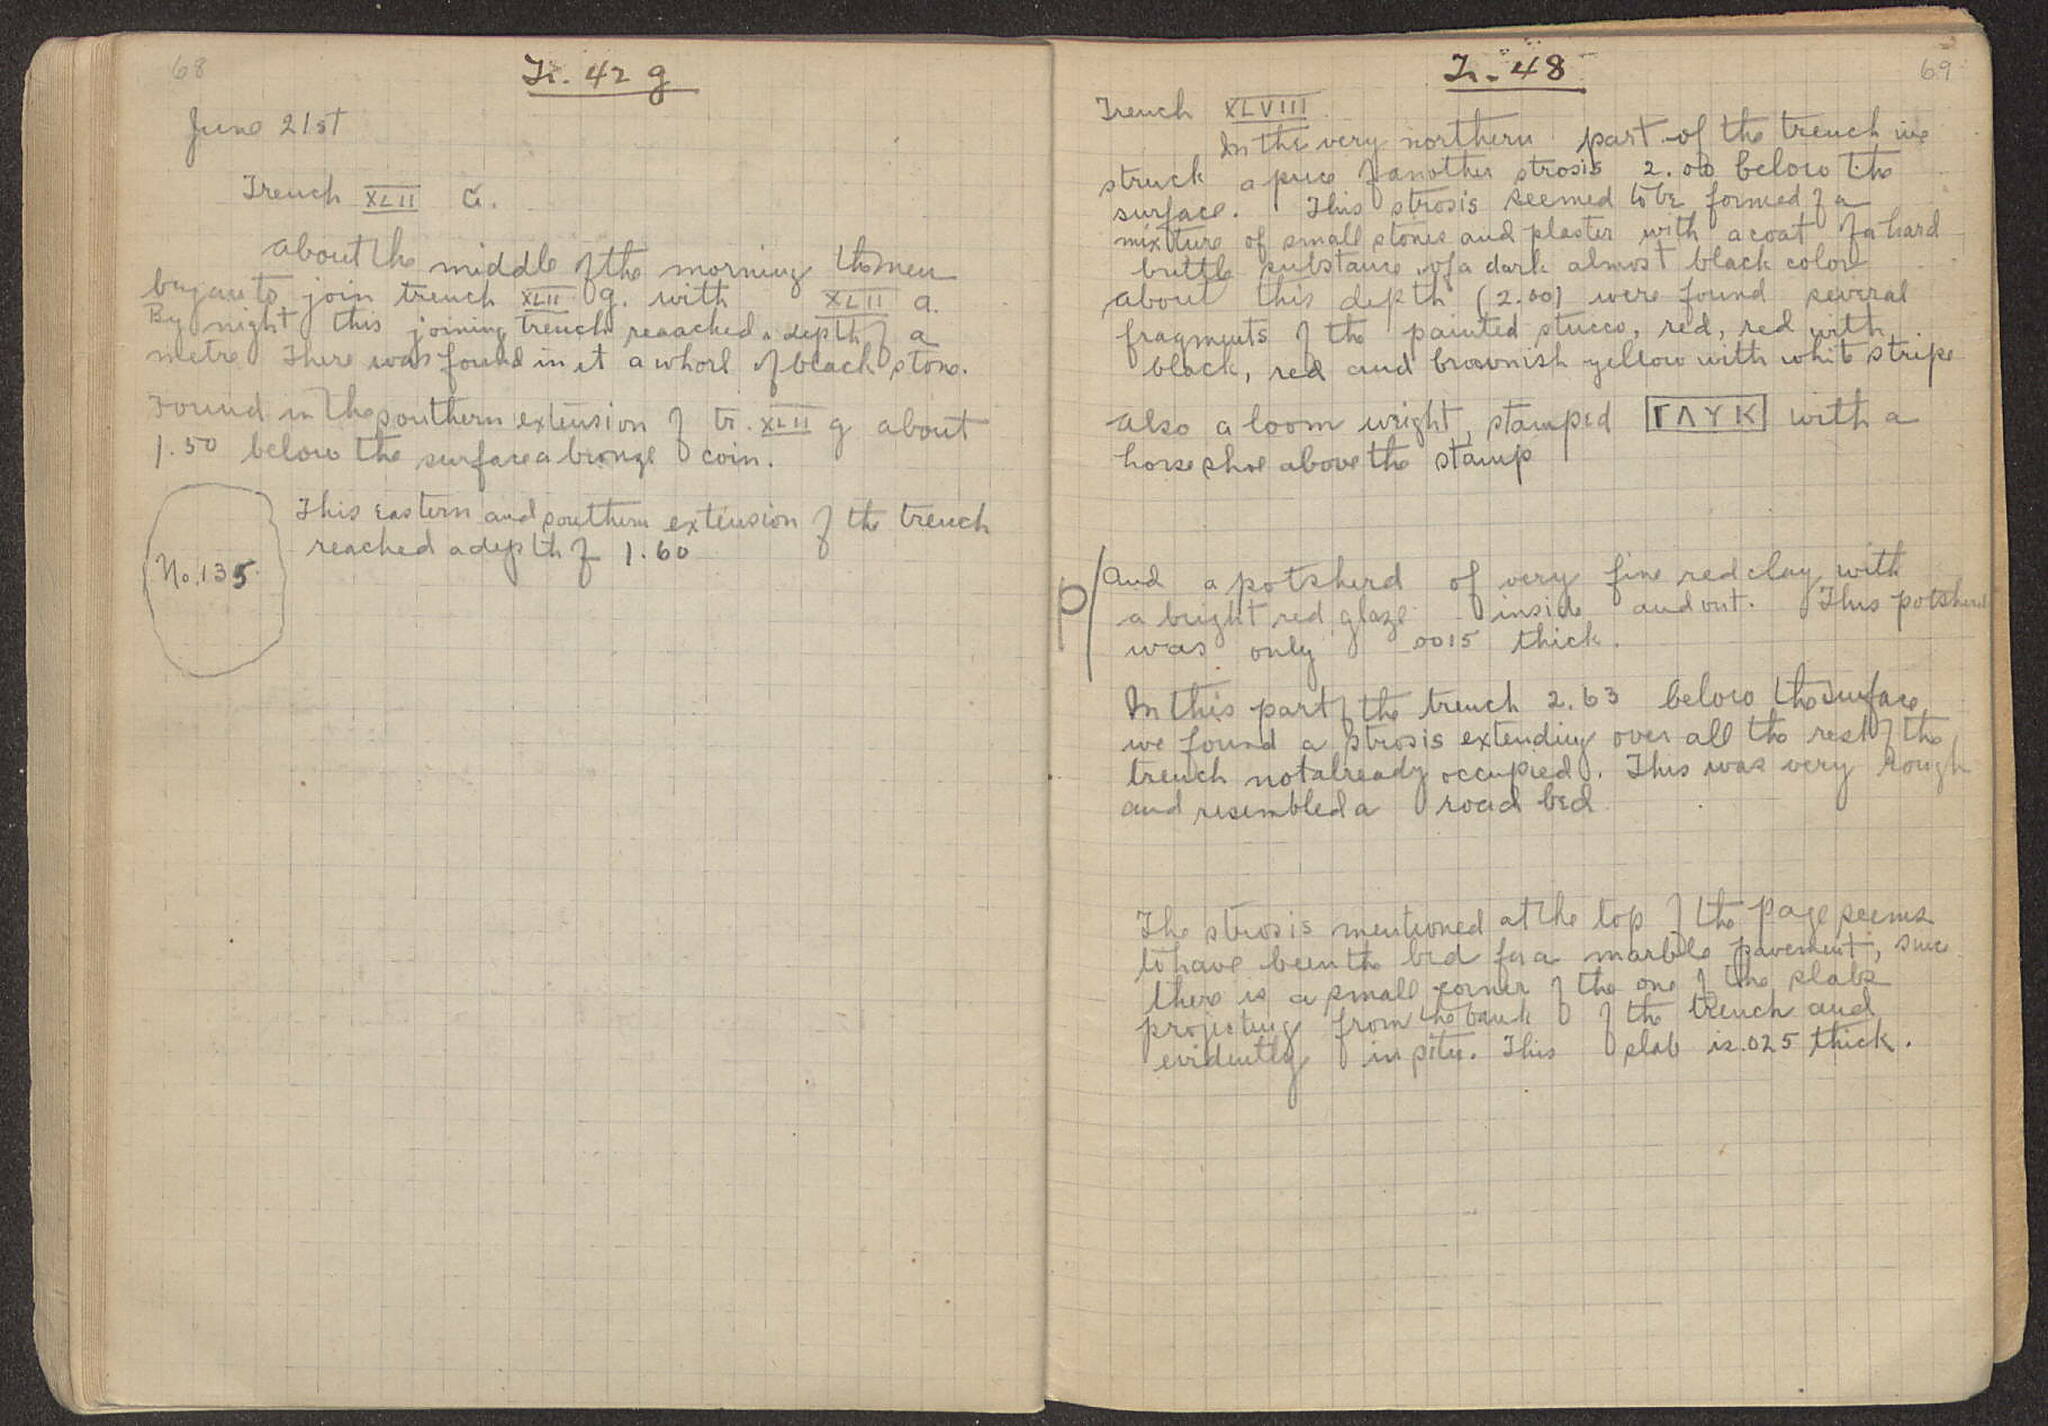 68
Tr. 42 g
June 21st
Trench XLII G.
About the middle of the morning the men
began to join trench XLII g. with XLII a.
By night this joining trench reaached a depth of a
metre There was found in it a whorl of black stone.
Found in the southern extension of tr. XLII g about
1.50 below the surface a bronze coin.
This eastern and southern extension of the trench
reached a depth of 1.60
No. 135.
69
Tr. 48
Trench XLVIII
In the very northern part of the trench we
struck a piece of another strosis 2.00 below the
surface. This strosis seemed to be formed of a
mixture of small stones and plaster with a coat of a hard
brittle substance of a dark almost black color
About this depth (2.00) were found several
fragments of the painted stucco, red, red with
black, red and brownish yellow with white stripe
Also a loom weight, stamped ΓΛΥΚ with a
horse shoe above the stamp
P
And a potsherd of very fine red clay with
a bright red glaze inside and out. This potsherd
was only .0015 thick.
In this part of the trench 2.63 below the surface
we found a strosis extending over all the rest of the
trench not already occupied. This was very rough
and resembled a road bed
The strosis mentioned at the top of the page seems
to have been the bed for a marble pavement, since
there is a small corner of the one of the slabs
projecting from the bank of the trench and
evidently in situ. This slab is .025 thick.